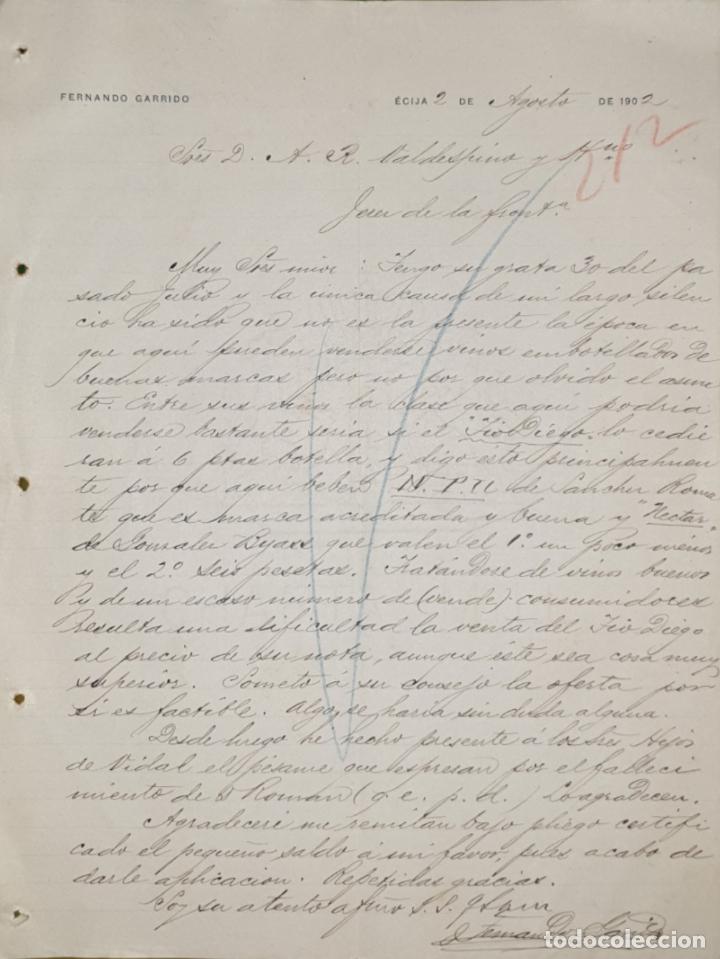 FERNANDO GARRIDO
ÉCIJA 2 DE Agosto DE 1902
212
Sres D. A. R. Valdespino y Hno
Jerez de la Front.ª
Muy Sres mios: Tengo su grata 30 del pa
sado Julio y la única causa de mi largo silen
cio ha sido que no es la presente la época en
que aquí pueden venderse vinos embotellados de
buenas marcas pero no por que olvido el asun
to. Entre sus vinos la clase que aquí podría
venderse bastante seria si el "Tio Diego" lo cedie
ran á 6 ptas botella, y digo esto principalmen
te por que aquí beben N.P.U. de Sanchez Roma
te que es marca acreditada y buena y "Nectar"
de Gonzalez Byass que valen el 1º un poco menos
y el 2º seis pesetas. Tratándose de vinos buenos
y de un escaso numero de (vende) consumidores
resulta una dificultad la venta del Tio Diego
al precio de su nota, aunque este sea cosa muy
superior. Someto á su consejo la oferta por
si es factible. Algo se haria sin duda alguna.
Desde luego he hecho presente á los Sres Hijos
de Vidal el pésame que espresan por el falleci
miento de D Roman (q. e. p. d.) Lo agradecen.
Agradeceré me remitan bajo pliego certifi
cado el pequeño saldo á mi favor, pues acabo de
darle aplicacion. Repetidas gracias.
Soy su atento afmo S. S.
Fernando Garrido
todocoleccion.net